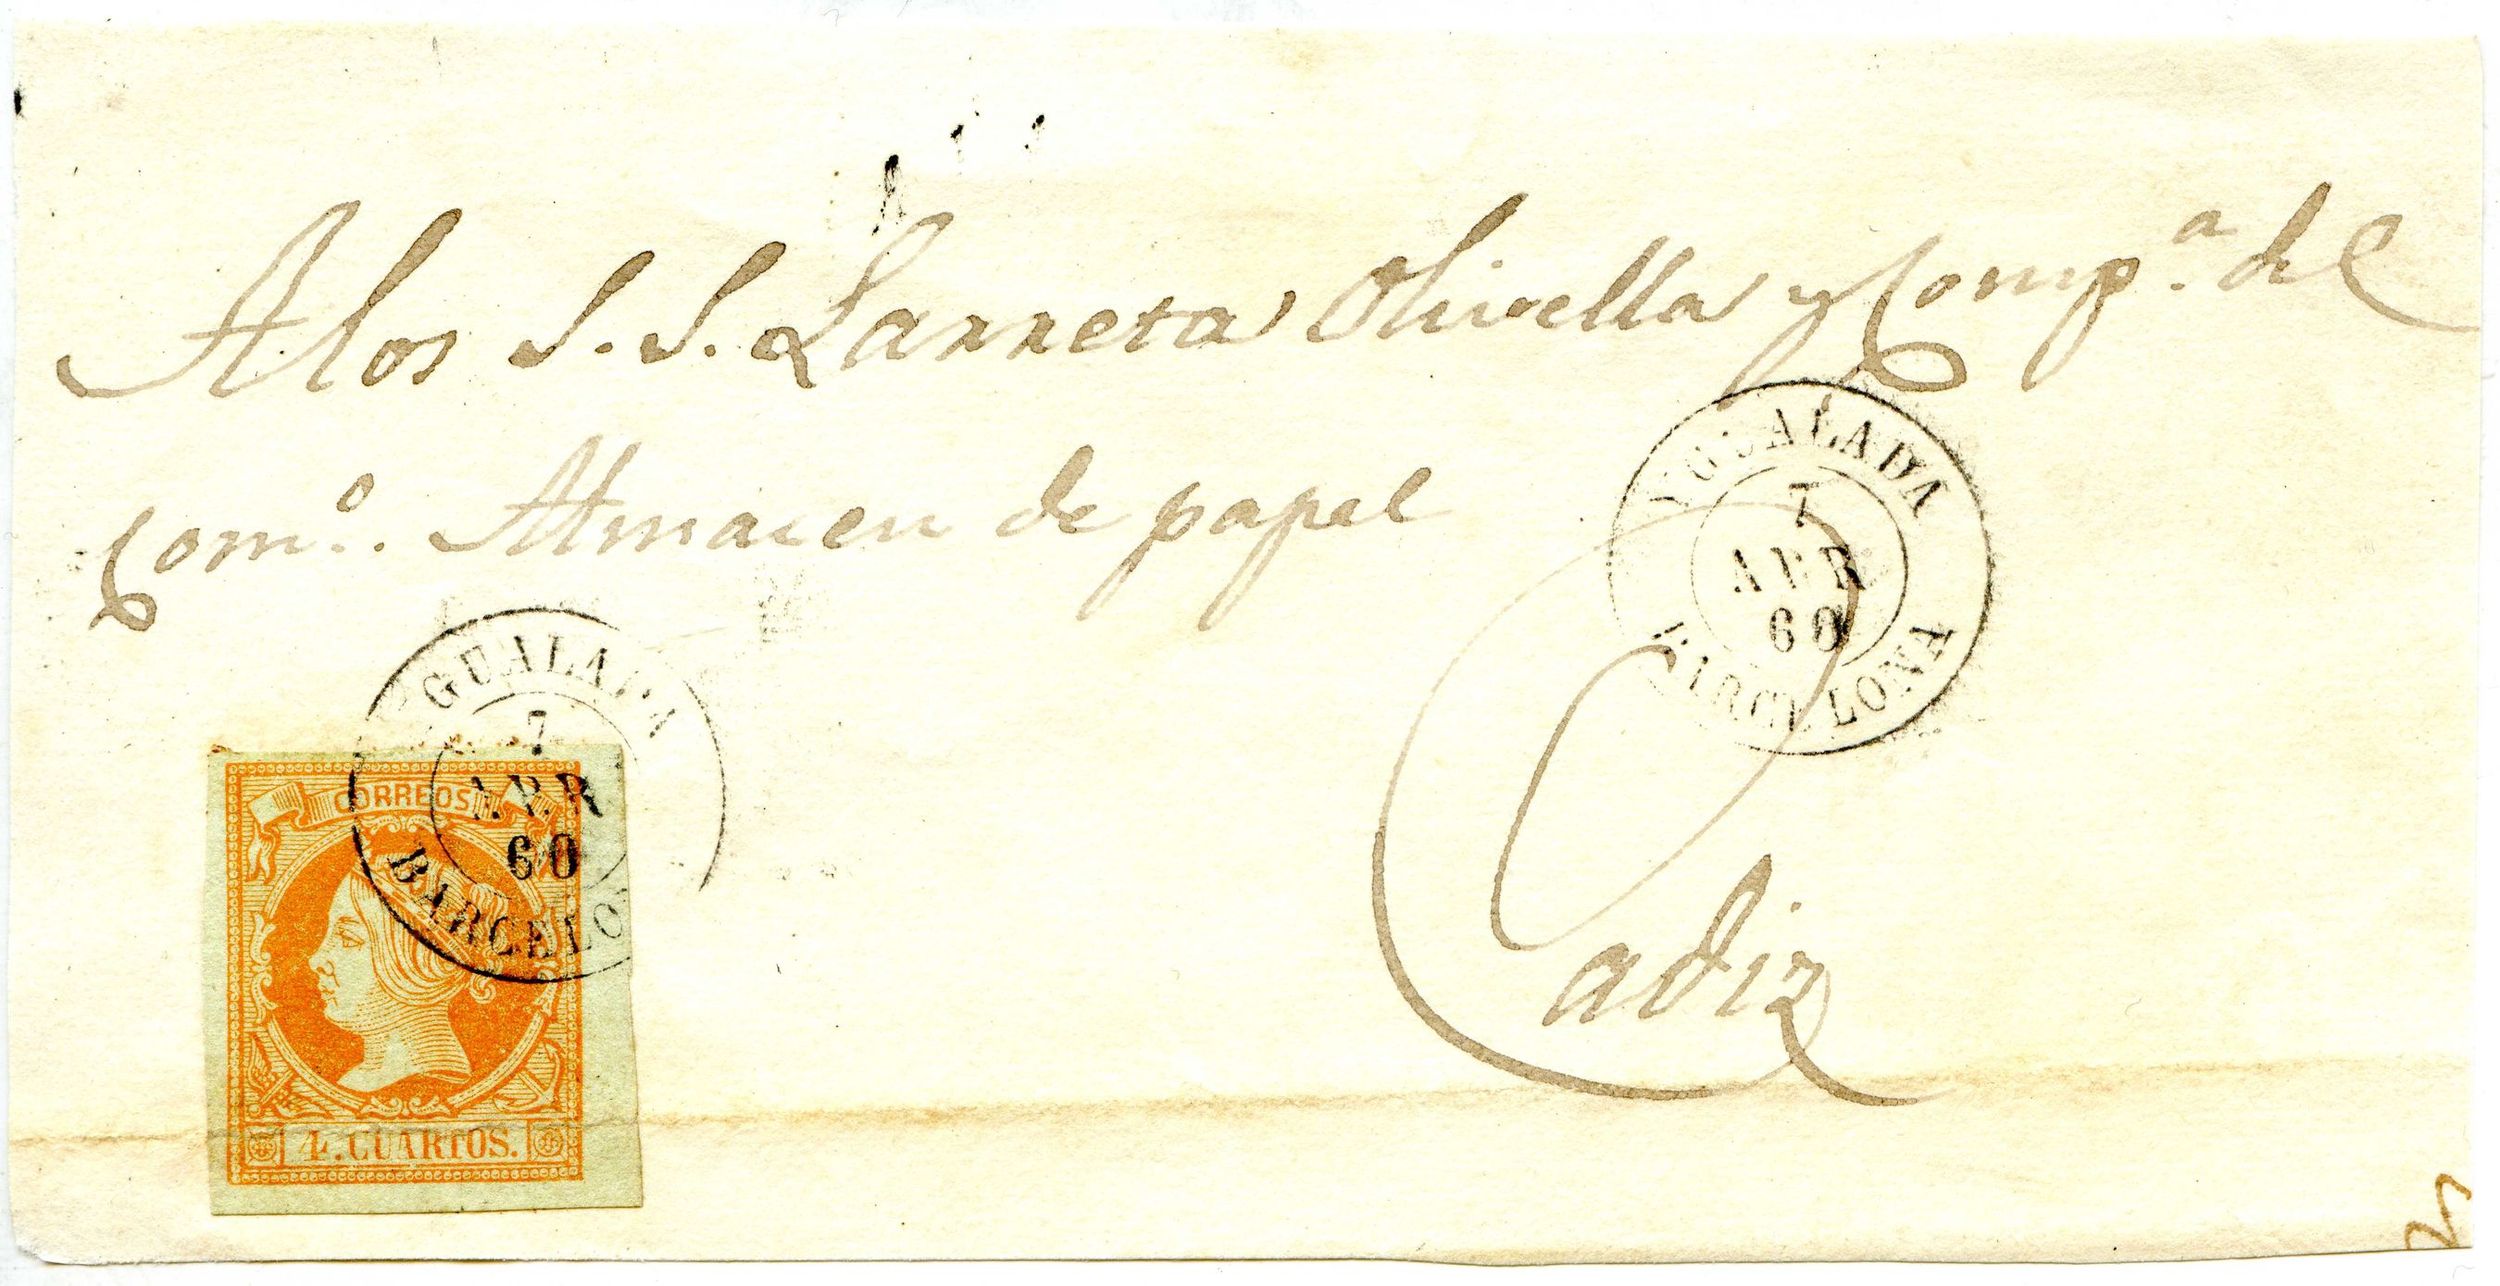 A los S.S. Larreta Olivella y Comp.ª del
Com.º Almacen de papel
YGUALADA
7
ABR
60
BARCELONA
YGUALADA
7
ABR
60
BARCELONA
CORREOS
Cadiz
4. CUARTOS.